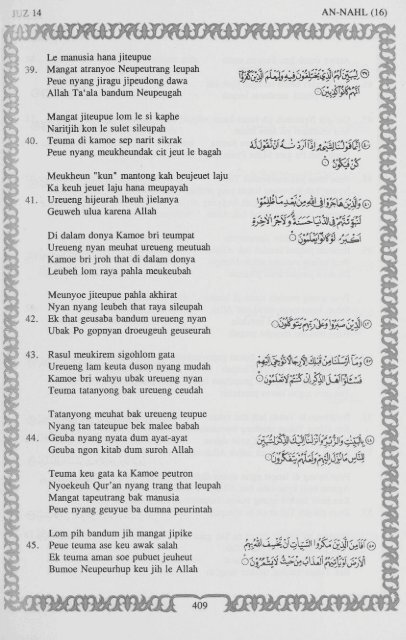 JUZ 14
AN-NAHL (16)
Le manusia hana jiteupue
39. Mangat atranyoe Neupeutrang leupah
Peue nyang jiragu jipeudong dawa
Allah Ta'ala bandum Neupeugah
Mangat jiteupue lom le si kaphe
Naritjih kon le sulet sileupah
40. Teuma di kamoe sep narit sikrak
Peue nyang meukheundak cit jeut le bagah
Meukheun "kun" mantong kah beujeuet laju
Ka keuh jeuet laju hana meupayah
41. Ureueng hijeurah lheuh jielanya
Geuweh ulua karena Allah
Di dalam donya Kamoe bri teumpat
Ureueng nyan meuhat ureueng meutuah
Kamoe bri jroh that di dalam donya
Leubeh lom raya pahla meukeubah
Meunyoe jiteupue pahla akhirat
Nyan nyang leubeh that raya sileupah
42. Ek that geusaba bandum ureueng nyan
Ubak Po gopnyan droeugeuh geuseurah
43. Rasul meukirem sigohlom gata
Ureueng lam keuta duson nyang mudah
Kamoe bri wahyu ubak ureueng nyan
Teuma tatanyong bak ureueng ceudah
Tatanyong meuhat bak ureueng teupue
Nyang tan tateupue bek malee babah
44. Geuba nyang nyata dum ayat-ayat
Geuba ngon kitab dum suroh Allah
Teuma keu gata ka Kamoe peutron
Nyoekeuh Qur'an nyang trang that leupah
Mangat tapeutrang bak manusia
Peue nyang geuyue ba dumna peurintah
Lom pih bandum jih mangat jipike
45. Peue teuma ase keu awak salah
Ek teuma aman soe pubuet jeuheut
Bumoe Neupeurhup keu jih le Allah
لِيُبَيِّنَ لَهُمُ الَّذِي يَخْتَلِفُونَ فِيهِ وَلِيَعْلَمَ الَّذِينَ كَفَرُوا
أَنَّهُمْ كَانُوا كَاذِبِينَ
إِنَّمَا قَوْلُنَا لِشَيْءٍ إِذَا أَرَدْنَاهُ أَنْ نَقُولَ لَهُ
كُنْ فَيَكُونُ
وَالَّذِينَ هَاجَرُوا فِي اللَّهِ مِنْ بَعْدِ مَا ظُلِمُوا
لَنُبَوِّئَنَّهُمْ فِي الدُّنْيَا حَسَنَةً وَلَأَجْرُ الْآخِرَةِ
أَكْبَرُ لَوْ كَانُوا يَعْلَمُونَ
الَّذِينَ صَبَرُوا وَعَلَى رَبِّهِمْ يَتَوَكَّلُونَ
وَمَا أَرْسَلْنَا مِنْ قَبْلِكَ إِلَّا رِجَالًا نُوحِي إِلَيْهِمْ
فَسْئَلُوا أَهْلَ الذِّكْرِ إِنْ كُنْتُمْ لَا تَعْلَمُونَ
بِالْبَيِّنَاتِ وَالزُّبُرِ وَأَنْزَلْنَا إِلَيْكَ الذِّكْرَ لِتُبَيِّنَ
لِلنَّاسِ مَا نُزِّلَ إِلَيْهِمْ وَلَعَلَّهُمْ يَتَفَكَّرُونَ
أَفَأَمِنَ الَّذِينَ مَكَرُوا السَّيِّئَاتِ أَنْ يَخْسِفَ اللَّهُ بِهِمُ
الْأَرْضَ أَوْ يَأْتِيَهُمُ الْعَذَابُ مِنْ حَيْثُ لَا يَشْعُرُونَ
409